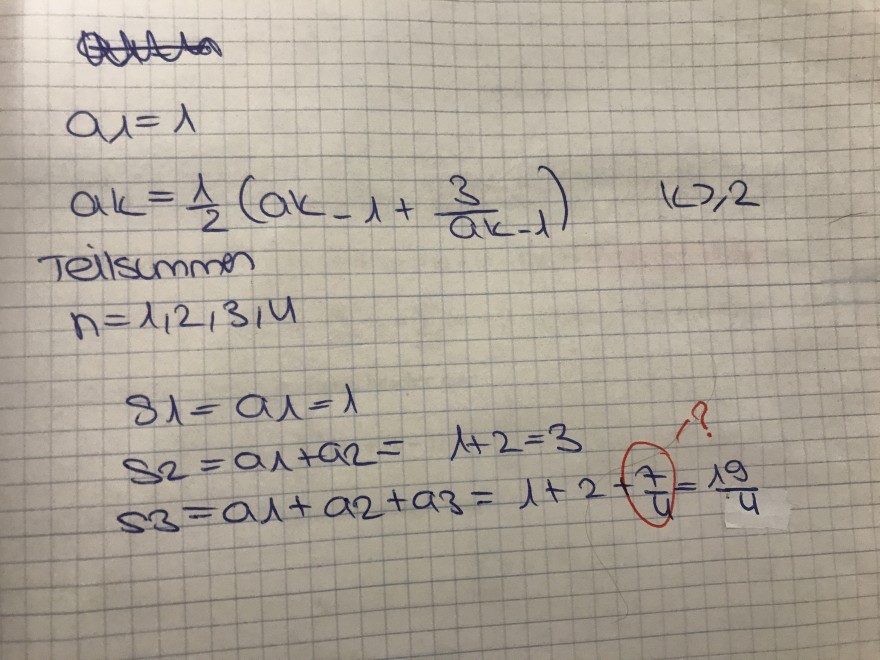 a1 = 1
ak = 1/2 (ak-1 + 3/ak-1) k ≥ 2
Teilsummen
n = 1,2,3,4
S1 = a1 = 1
S2 = a1 + a2 = 1+2 = 3
S3 = a1 + a2 + a3 = 1 + 2 + 7/4 = 19/4
?